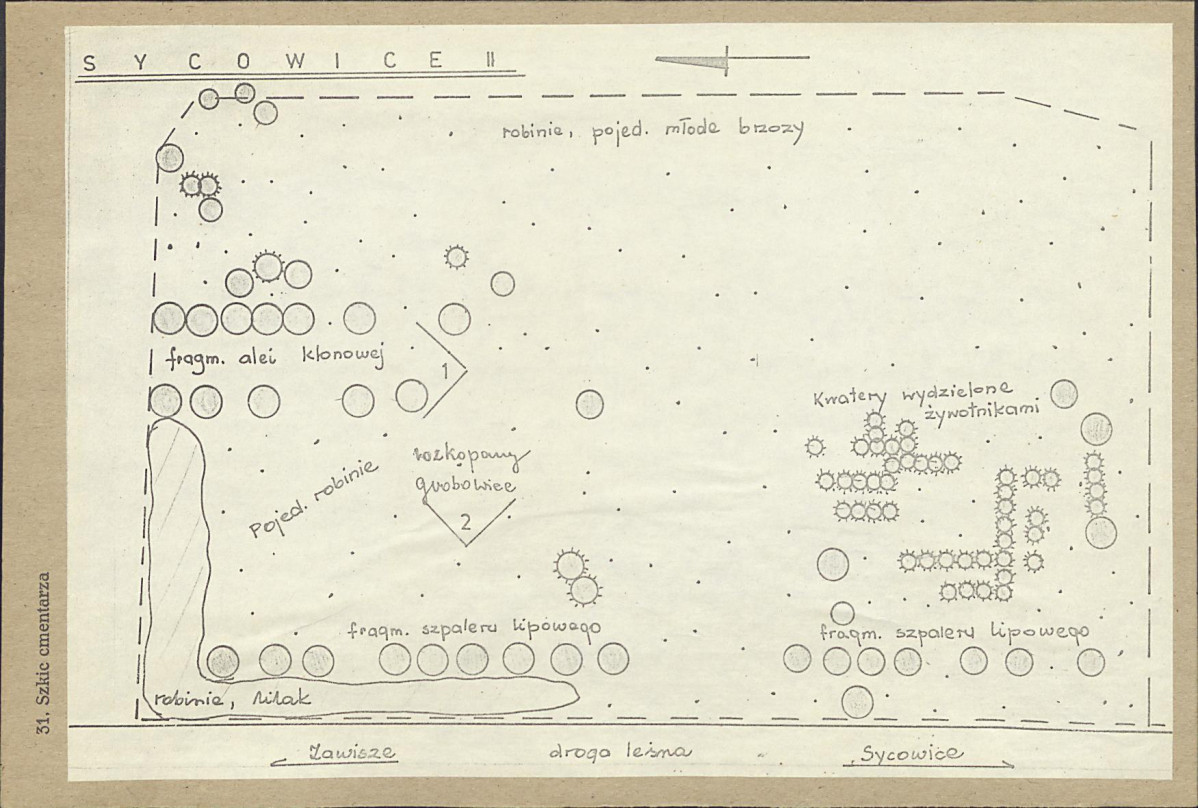 SYCOWICE II
robinie, pojed. młode brzozy
fragm. alei klonowej
1
Kwatery wydzielone
żywotnikami
rozkopany
grobowiec
pojed. robinie
2
fragm. szpaleru lipowego
fragm. szpaleru lipowego
robinie, lilak
Zawisze
droga leśna
Sycowice
31. Szkic cmentarza